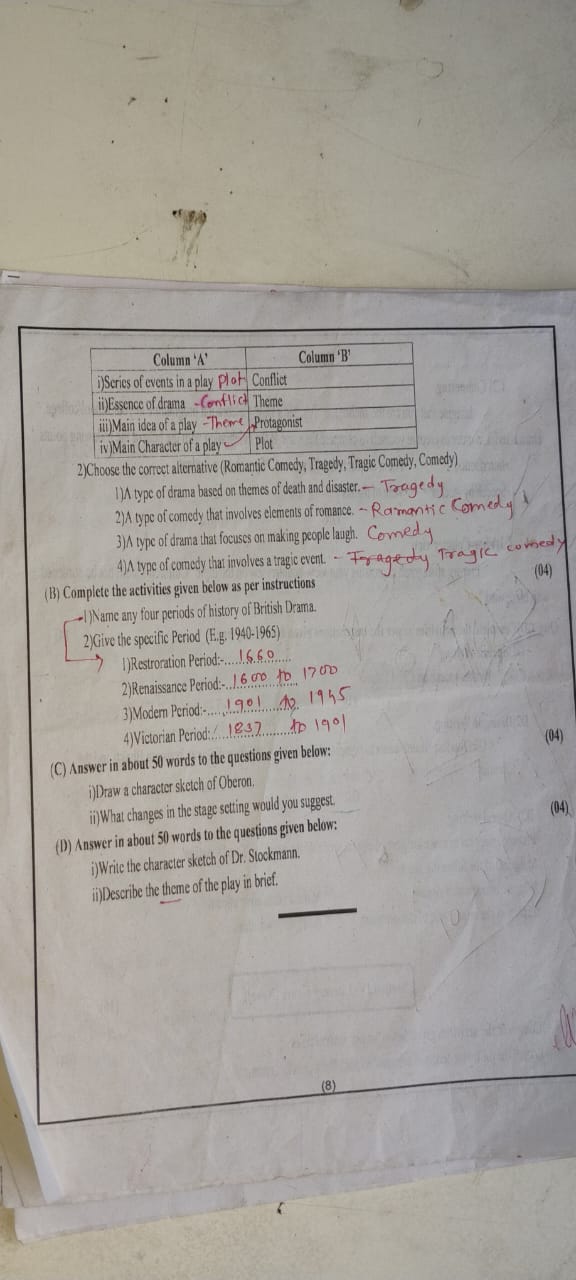 Column 'A' Column 'B'
i)Series of events in a play Plot Conflict
ii)Essence of drama -Conflict Theme
iii)Main idea of a play -Theme Protagonist
iv)Main Character of a play Plot
2)Choose the correct alternative (Romantic Comedy, Tragedy, Tragic Comedy, Comedy)
1)A type of drama based on themes of death and disaster. - Tragedy
2)A type of comedy that involves elements of romance. - Ramantic Comedy
3)A type of drama that focuses on making people laugh. Comedy
4)A type of comedy that involves a tragic event. - Tragedy Tragic comedy
(04)
(B) Complete the activities given below as per instructions
1)Name any four periods of history of British Drama.
2)Give the specific Period (E.g. 1940-1965)
1)Restroration Period:-....1660......
2)Renaissance Period:-..1600 to 1700
3)Modern Period:-.....1901 to 1945
4)Victorian Period:.. 1837 ...... to 1901
(04)
(C) Answer in about 50 words to the questions given below:
i)Draw a character sketch of Oberon.
ii)What changes in the stage setting would you suggest.
(04)
(D) Answer in about 50 words to the questions given below:
i)Write the character sketch of Dr. Stockmann.
ii)Describe the theme of the play in brief.
(8)